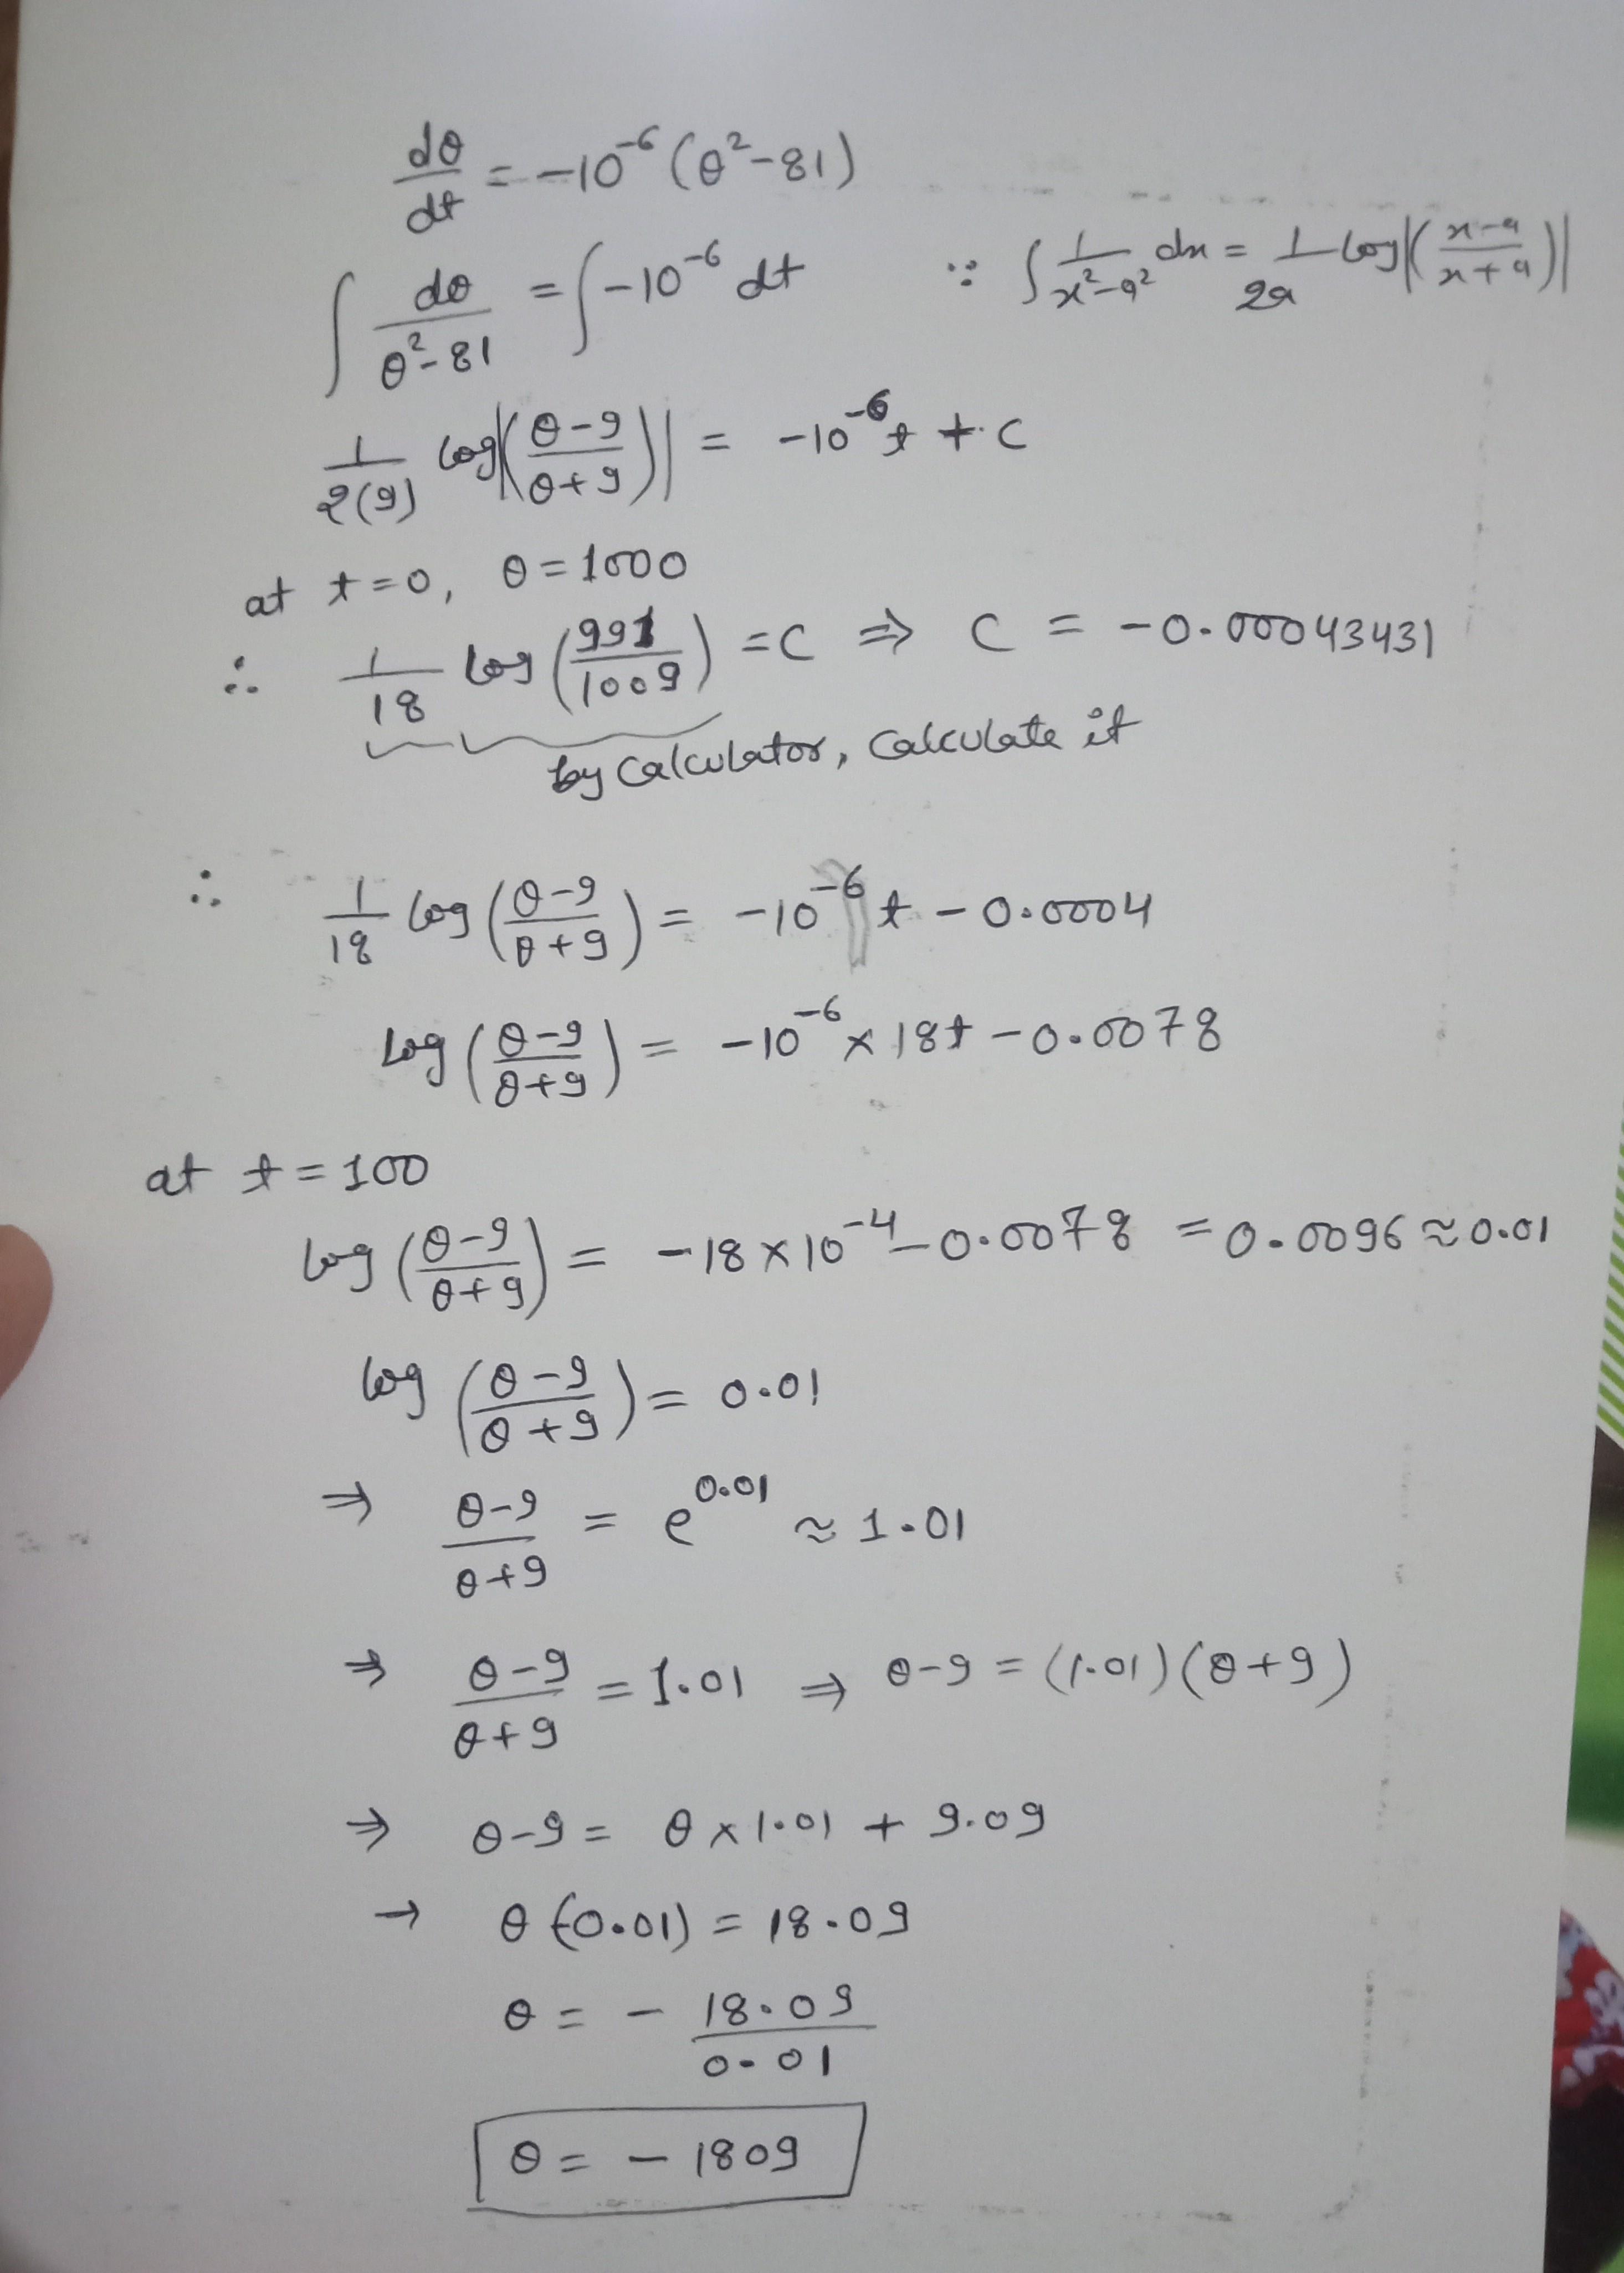 dθ/dt = -10⁻⁶ (θ²-81)
∫ dθ/(θ²-81) = ∫ -10⁻⁶ dt ∵ ∫ 1/(x²-a²) dx = 1/2a log|((x-a)/(x+a))|
1/2(9) log|((θ-9)/(θ+9))| = -10⁻⁶ t + C
at t=0, θ=1000
∴ 1/18 log (991/1009) = C ⇒ C = -0.00043431
by calculator, calculate it
∴ 1/18 log ((θ-9)/(θ+9)) = -10⁻⁶ t - 0.0004
log ((θ-9)/(θ+9)) = -10⁻⁶ × 18t - 0.0078
at t = 100
log ((θ-9)/(θ+9)) = -18×10⁻⁴ - 0.0078 = 0.0096 ≈ 0.01
log ((θ-9)/(θ+9)) = 0.01
⇒ (θ-9)/(θ+9) = e^0.01 ≈ 1.01
⇒ (θ-9)/(θ+9) = 1.01 ⇒ θ-9 = (1.01)(θ+9)
⇒ θ-9 = θ×1.01 + 9.09
→ θ(-0.01) = 18.09
θ = - 18.09/0.01
θ = - 1809